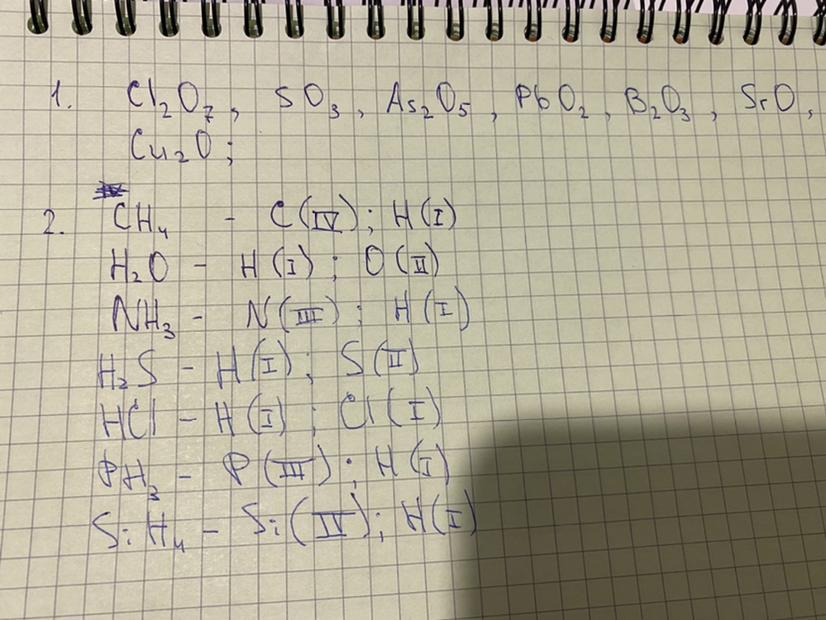 1. Cl₂O₇, SO₃, As₂O₅, PbO₂, B₂O₃, SrO,
Cu₂O;
2. CH₄ - C(IV); H(I)
H₂O - H(I); O(II)
NH₃ - N(III); H(I)
H₂S - H(I); S(II)
HCl - H(I); Cl(I)
PH₃ - P(III); H(I)
SiH₄ - Si(IV); H(I)